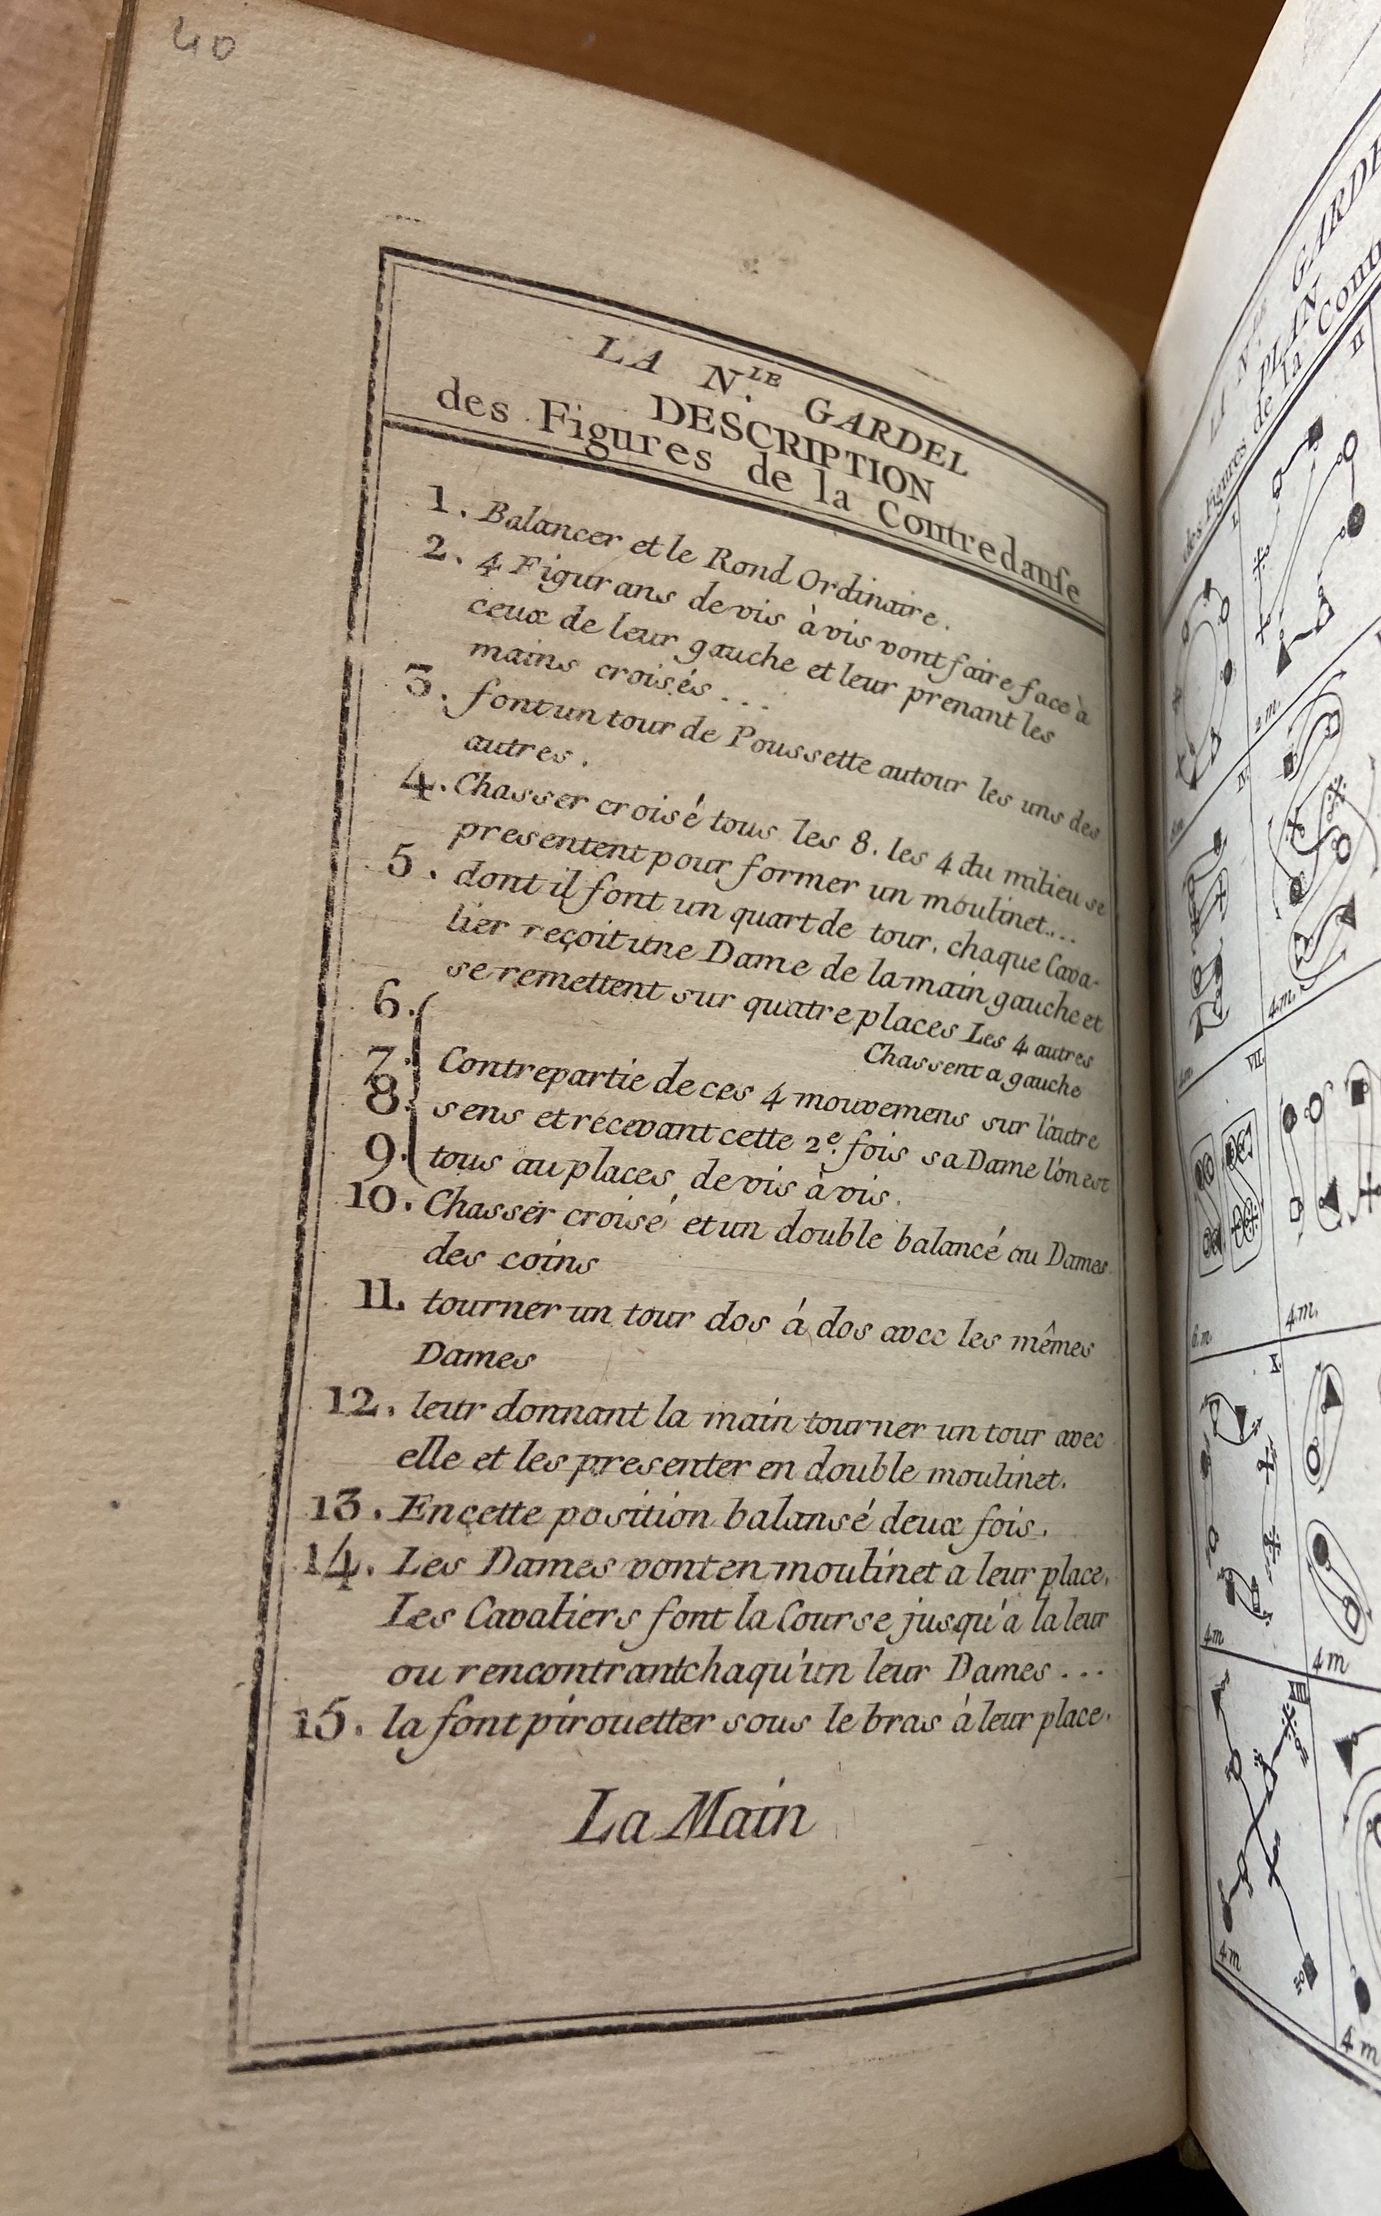 40
LA N.LE GARDEL
DESCRIPTION
des Figures de la Contredanſe
1. Balancer et le Rond Ordinaire.
2. 4 Figurans de vis à vis vont faire face à
ceux de leur gauche et leur prenant les
mains croisés...
3. font un tour de Poussette autour les uns des
autres.
4. Chasser croisé tous les 8. les 4 du milieu se
presentent pour former un moulinet...
5. dont il font un quart de tour. chaque Cava-
lier reçoit une Dame de la main gauche et
se remettent sur quatre places Les 4 autres
Chassent a gauche
6.
7. Contrepartie de ces 4 mouvemens sur l'autre
8. sens et recevant cette 2e. fois sa Dame l'on est
9. tous au places de vis à vis.
10. Chasser croisé et un double balancé au Dames
des coins
11. tourner un tour dos á dos avec les mêmes
Dames
12. leur donnant la main tourner un tour avec
elle et les presenter en double moulinet.
13. En cette position balansé deux fois.
14. Les Dames vont en moulinet a leur place,
Les Cavaliers font la Course jusqu'a la leur
ou rencontrant chaqu'un leur Dames...
15. la font pirouetter sous le bras à leur place.
La Main
LA N.LE GARDE
PLAN
des Figures de la Cont
I.
II
2 m.
IV.
4 m.
VII.
6 m
4 m.
X.
4 m
4 m
XIII
4 m
4 m